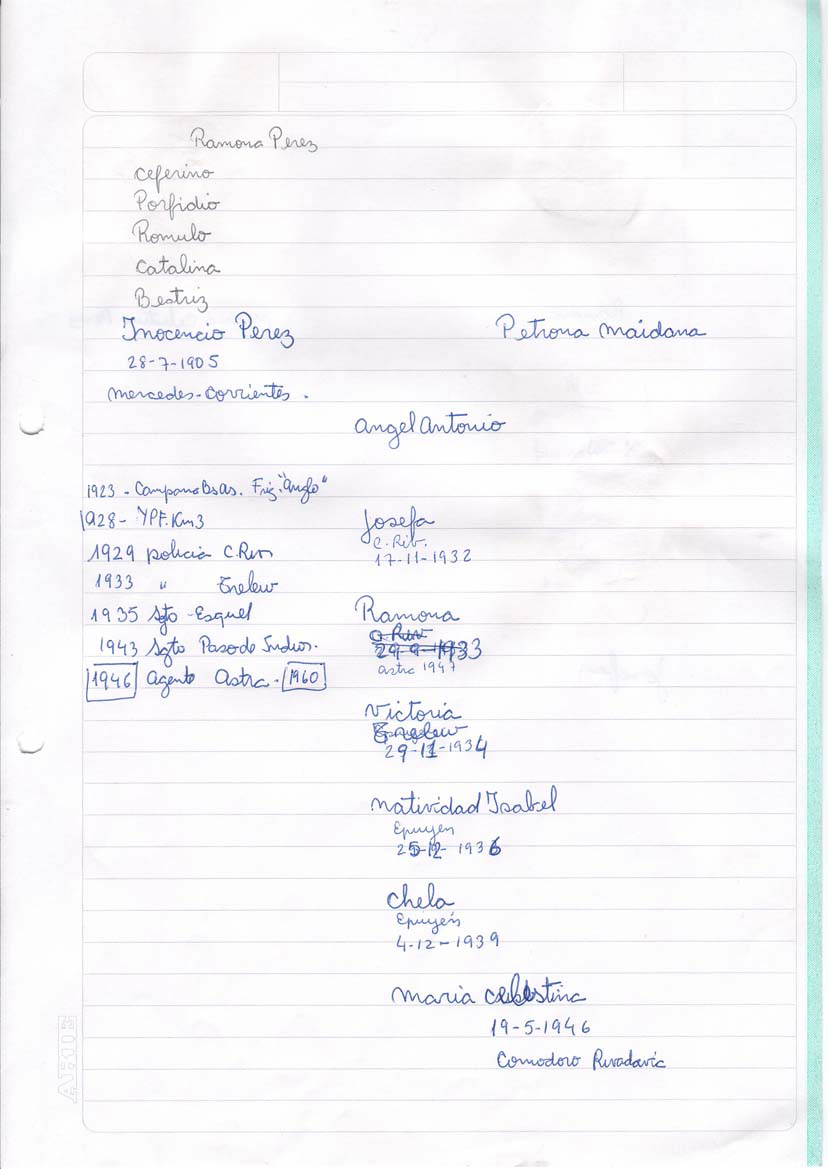 Ramona Perez
ceferino
Porfidio
Romulo
Catalina
Beatriz
Inocencio Perez
Petrona maidana
28-7-1905
mercedes-corrientes.
angel antonio
1923 - Campana Bs as. Frig. "anglo"
1928 - YPF. Km3
1929 policia C. Riv
1933 " Trelew
1935 Sgto - Esquel
1943 Sgto Paso de Indios.
1946 agente Astra - 1960
Josefa
C. Riv.
17-11-1932
Ramona
C Riv
29-9-1933
astra 1947
Victoria
29-11-1934
natividad Isabel
Epuyen
25-12-1936
chela
Epuyén
4-12-1939
maria celestina
19-5-1946
Comodoro Rivadavia
ARTE